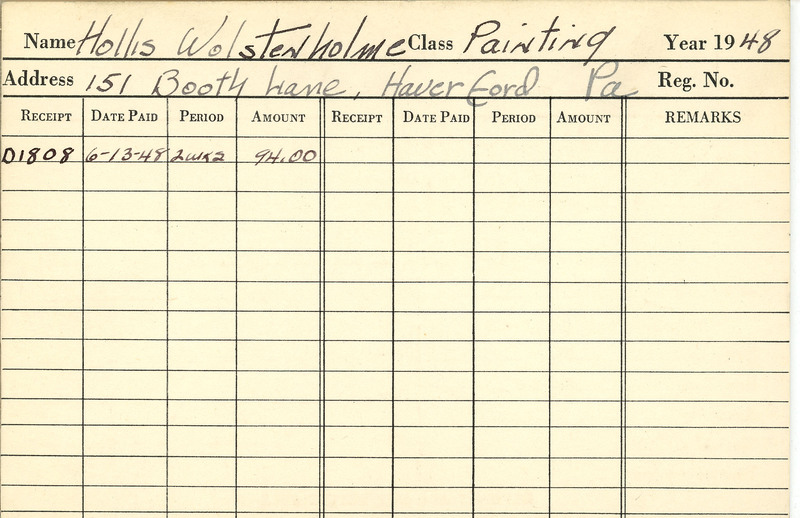 Name Hollis Wolstenholme Class Painting Year 1948
Address 151 Booth Lane, Haverford Pa Reg. No.
RECEIPT DATE PAID PERIOD AMOUNT RECEIPT DATE PAID PERIOD AMOUNT REMARKS
D1808 6-13-48 2wks 94.00